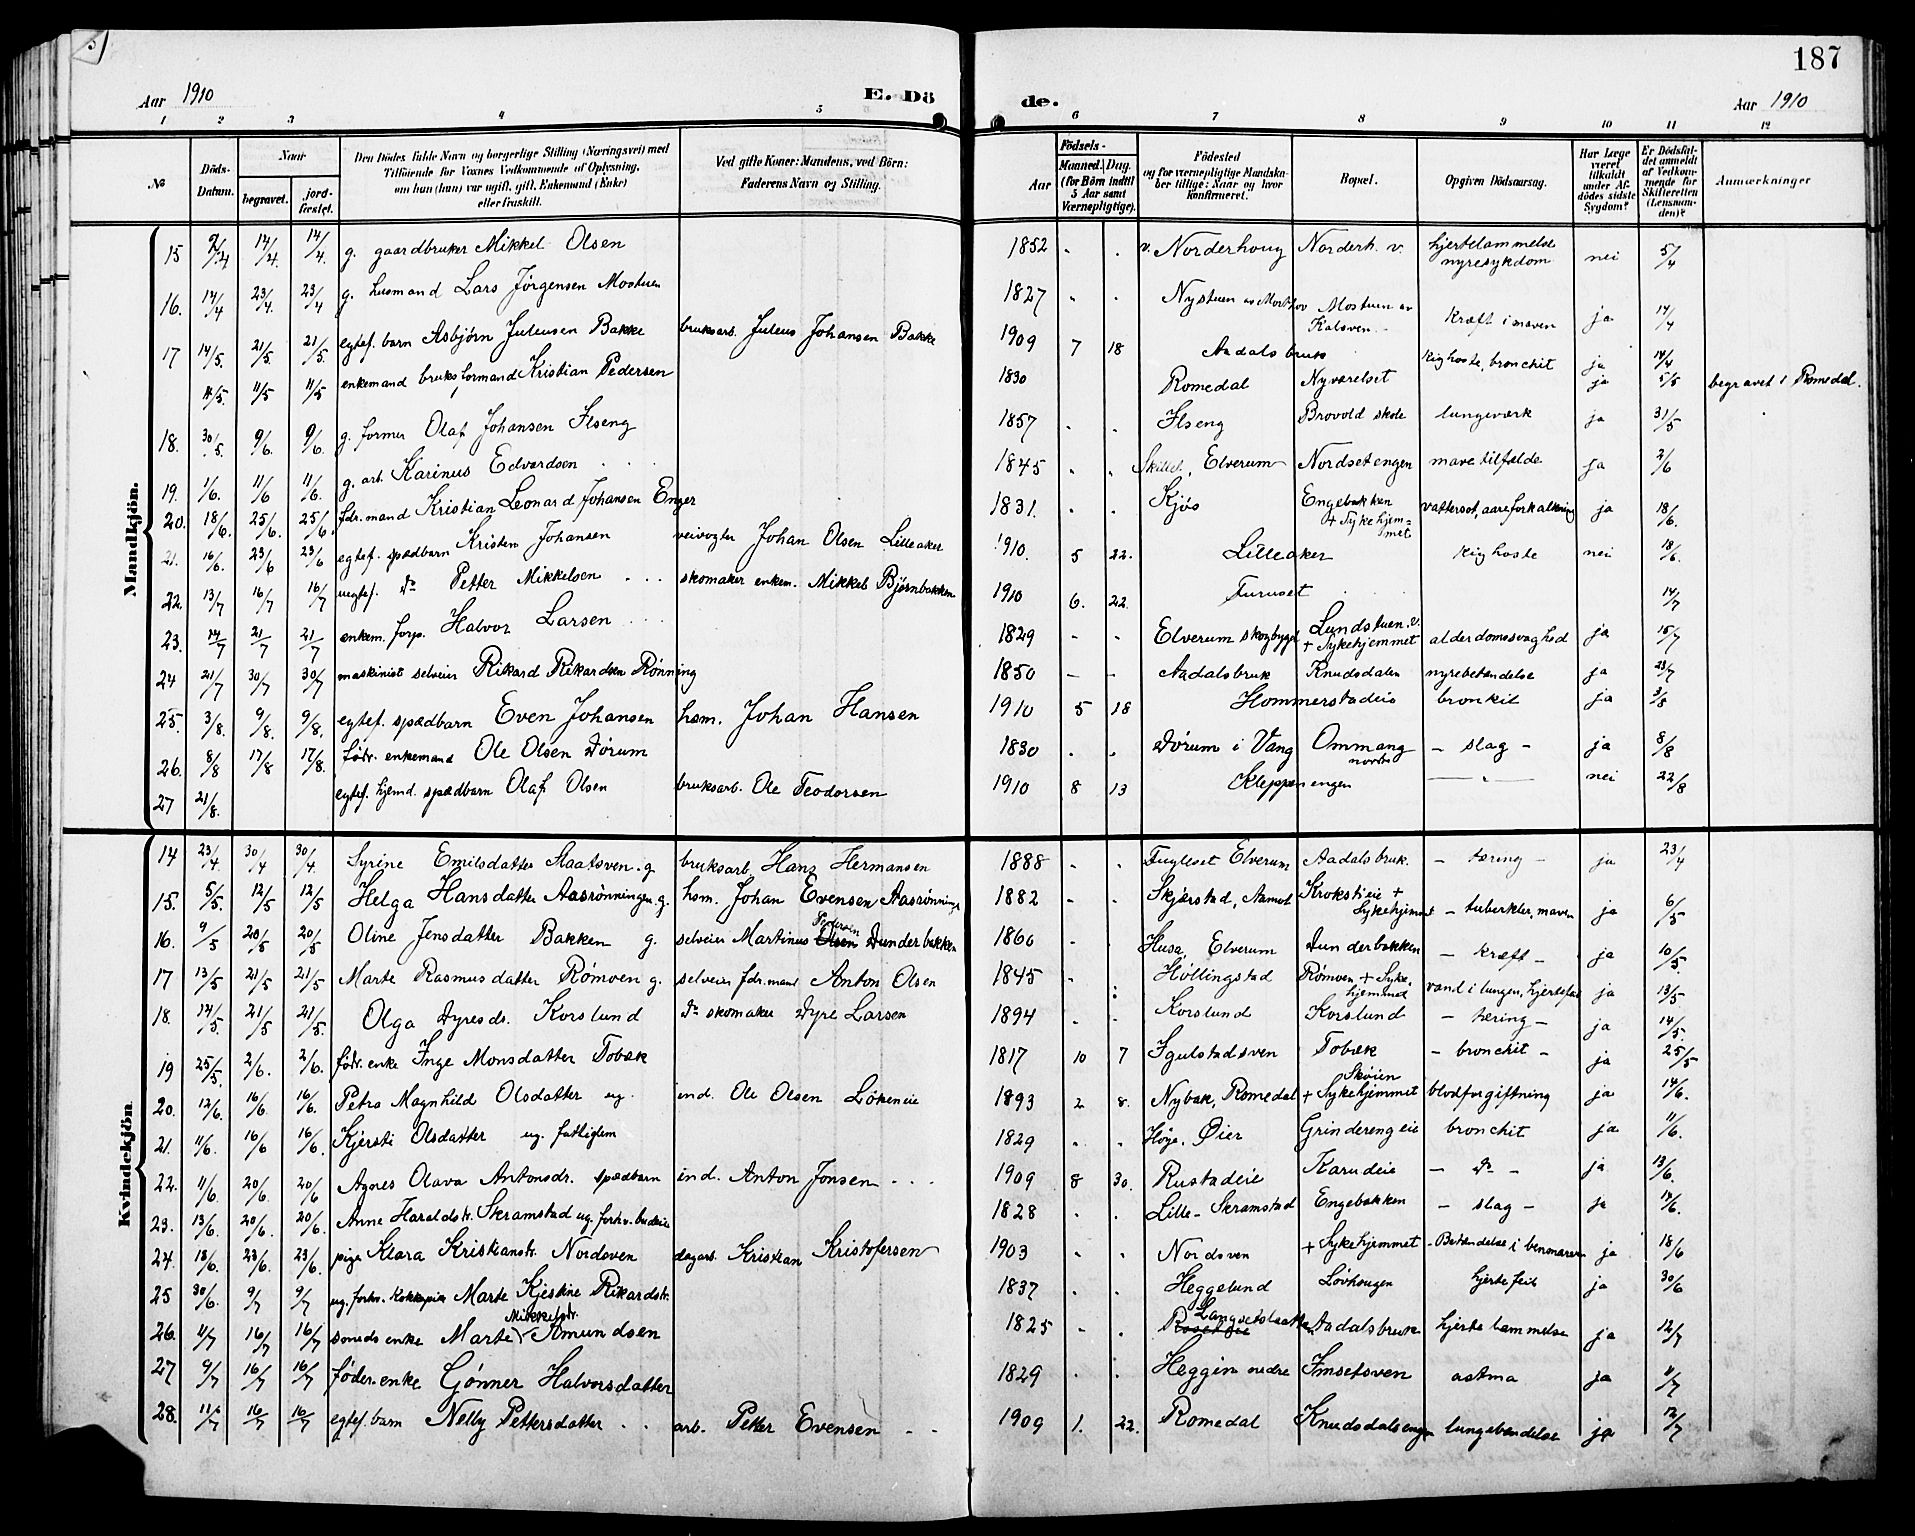 187
Aar 1910 E. Dö de. Aar 1910
1 2 3 4 5 6 7 8 9 10 11 12
No Döds-Datum. Naar begravet. jord-fæstet. Den Dödes fulde Navn og borgerlige Stilling (Næringsvei) med Tilföiende for Voxnes Vedkommende af Oplysning, om han (hun) var ugift, gift, Enkemand (Enke) eller fraskilt. Ved gifte Koner: Mandens, ved Börn: Faderens Navn og Stilling. Födsels- Aar Maaned. Dag. (for Börn indtil 5 Aar samt Værnepligtige). Födested og for værnepligtige Mandska-ber tillige: Naar og hvor konfirmeret. Bopæl. Opgiven Dödsaarsag. Har Læge været tilkaldt under Af-dödes sidste Sygdom? Er Dödsfal-det anmeldt af Vedkom-mende for Skifteretten (Lensman-den)? Anmærkninger
Mandkjön.
15 2/4 14/4. 14/4. g. gaardbruker Mikkel Olsen 1852 - . v. Norderhoug Norderh. v. hjertelammelse nyresykdom nei 5/4
16. 14/4 23/4. 23/4 g. husmand Lars Jørgensen Mostuen 1827 - . Nystuen Mostuen av Kalsven. kræft i maven ja 14/4
17 14/5. 21/5 21/5. egtef. barn Asbjørn Juleusen Bakke bruksarb. Juleus Johansen Bakke 1909 7 18 Aadals bruk kighoste, bronchit ja 14/4
4/5. 11/5 11/5 enkemand bruksformand Kristian Pedersen 1830 Romedal Nyværelset ja 5/5 begravet i Romedal.
18. 30/5. 9/6. 9/6. g. former Olaf Johansen Ilseng 1857 . . Ilseng Brovold skole lungeværk ja 31/5
19. 1/6. 11/6 11/6. g. arb. Karinus Edvardsen 1845 . . Elverum Nordsetengen mavetilfælde ja 2/6
20. 18/6. 25/6. 25/6. fdr.mand Kristian Leonard Johansen Enger 1831. . . Kjøs Engebakken + Sykehjem=met vattersot, aareforkalkning ja 18/6.
21. 16/6. 23/6 23/6 egtef. spædbarn Kristen Johansen veivogter Johan Olsen Lilleaker 1910. 5 22. Lilleaker kighoste nei 18/6.
22. 13/7 16/7 16/7 uegtef. do Petter Mikkelsen skomaker enkem. Mikkel Bjørnbakken 1910 6. 22. Furuset 14/7
23. 14/7 21/7 21/7 enkem. forp. Halvor Larsen 1829 - - Elverum skogbygd Lundstuen. v. + Sykehjemmet alderdomssvaghed ja 15/7
24 21/7 30/7 30/7 maskinist selveier Rikard Rikardsen Rønning 1850 - - Aadalsbruk Knudsdalen nyrebetændelse ja 23/7
25. 3/8. 9/8. 9/8. egtef. spædbarn Even Johansen hsm. Johan Hansen 1910 5 18 Hommerstadeie bronkit ja 3/8
26. 8/8 17/8 17/8. födr. enkemand Ole Olsen Dørum 1830 . . Dørum i Vang Ommang nordre - slag - ja 8/8
27 21/8. egtef. hjemd. spædbarn Olaf Olsen bruksarb. Ole Teodorsen 1910 8 13 Kleppenengen — " — nei 22/8
Kvindekjön
14 23/4 30/4 30/4. Syrine Emilsdatter Staatsven. g bruksarb. Hans Hermansen 1888 - . Fugleset Elverum Aadalsbruk. - tæring - ja 23/4
15. 5/5. 12/5 12/5 Helga Hansdatter Aasrønningen. g. hsm. Johan Evensen Aasrønningen 1882 - . Skjærstad, Aamot Krokstieie + Sykehjemmet - tuberkler, maven ja 6/5
16. 9/5 20/5 20/5 Oline Jensdatter Bakken g. selveier Martinus Olsen Pedersen Dunderbakken 1860 . Husa, Elverum Dunderbakken - kræft - ja 10/5
17 13/5 21/5 21/5 Marte Rasmusdatter Rømoen g. selveier fdr.mand Anton Olsen 1845 - . Høllingstad Rømoen + Syke-hjemmet vand i lungen, hjertefeil ja 13/5
18. 14/5. 21/5 21/5. Olga Dyresdr. Korslund do skomaker Dyre Larsen 1894 . . Korslund Korslund - tæring - ja 14/5.
19 25/5. 2/6. 2/6. födr. enke Inge Monsdatter Tobæk 1817 10 7 Igulstadsven Tobæk - bronchit - ja 25/5
20. 12/6. 16/6. 16/6. Petra Magnhild Olsdatter ug. ind. Ole Olsen Løkeneie 1893 2 8. Nybak, Romedal Skøien + Sykehjemmet blodforgiftning ja 14/6.
21. 11/6. 16/6 16/6 Kjersti Olsdatter ug. fattiglem 1829 . . Høye. Øier Grinderengeie bronchit ja 11/6.
22. 11/6. 20/6. 20/6 Agnes Olava Antonsdr. spædbarn ind. Anton Jonsen 1909 8 30. Rustadeie Karudeie - do - ja 13/6.
23. 13/6. 20/6. 20/6. Anne Haraldsdtr. Skramstad ug. forhv. budeie 1828 . . Lille-Skramstad Engebakken - slag - ja 14/6.
24. 18/6. 23/6. 23/6. pige Klara Kristiansdtr. Nordsven dagarb. Kristian Kristofersen 1903 . . Nordsven + Sykehjemmet - Betændelse i benmarven ja 18/6
25 30/6. 9/7 9/7 ug. forhv. kokkepike Marte Kjestine Rikardsdtr. 1837 . . Heggelund Løvhaugen hjertefeil ja 30/6
26. 11/7 16/7 16/7 smeds enke Marte Mikkelsdr. Amundsen 1825 - . Aadalsbruk hjertelammelse ja 12/7
27 9/7 16/7 16/7 føder. enke Gønner Halvorsdatter 1829 . . Heggin nedre Imsetsven astma ja 11/7
28. 11/7 16/7 16/7 egtef. barn Nelly Pettersdatter arb. Petter Evensen 1909 1. 22. Romedal Knudsdalsengen lungebetændelse ja 12/7